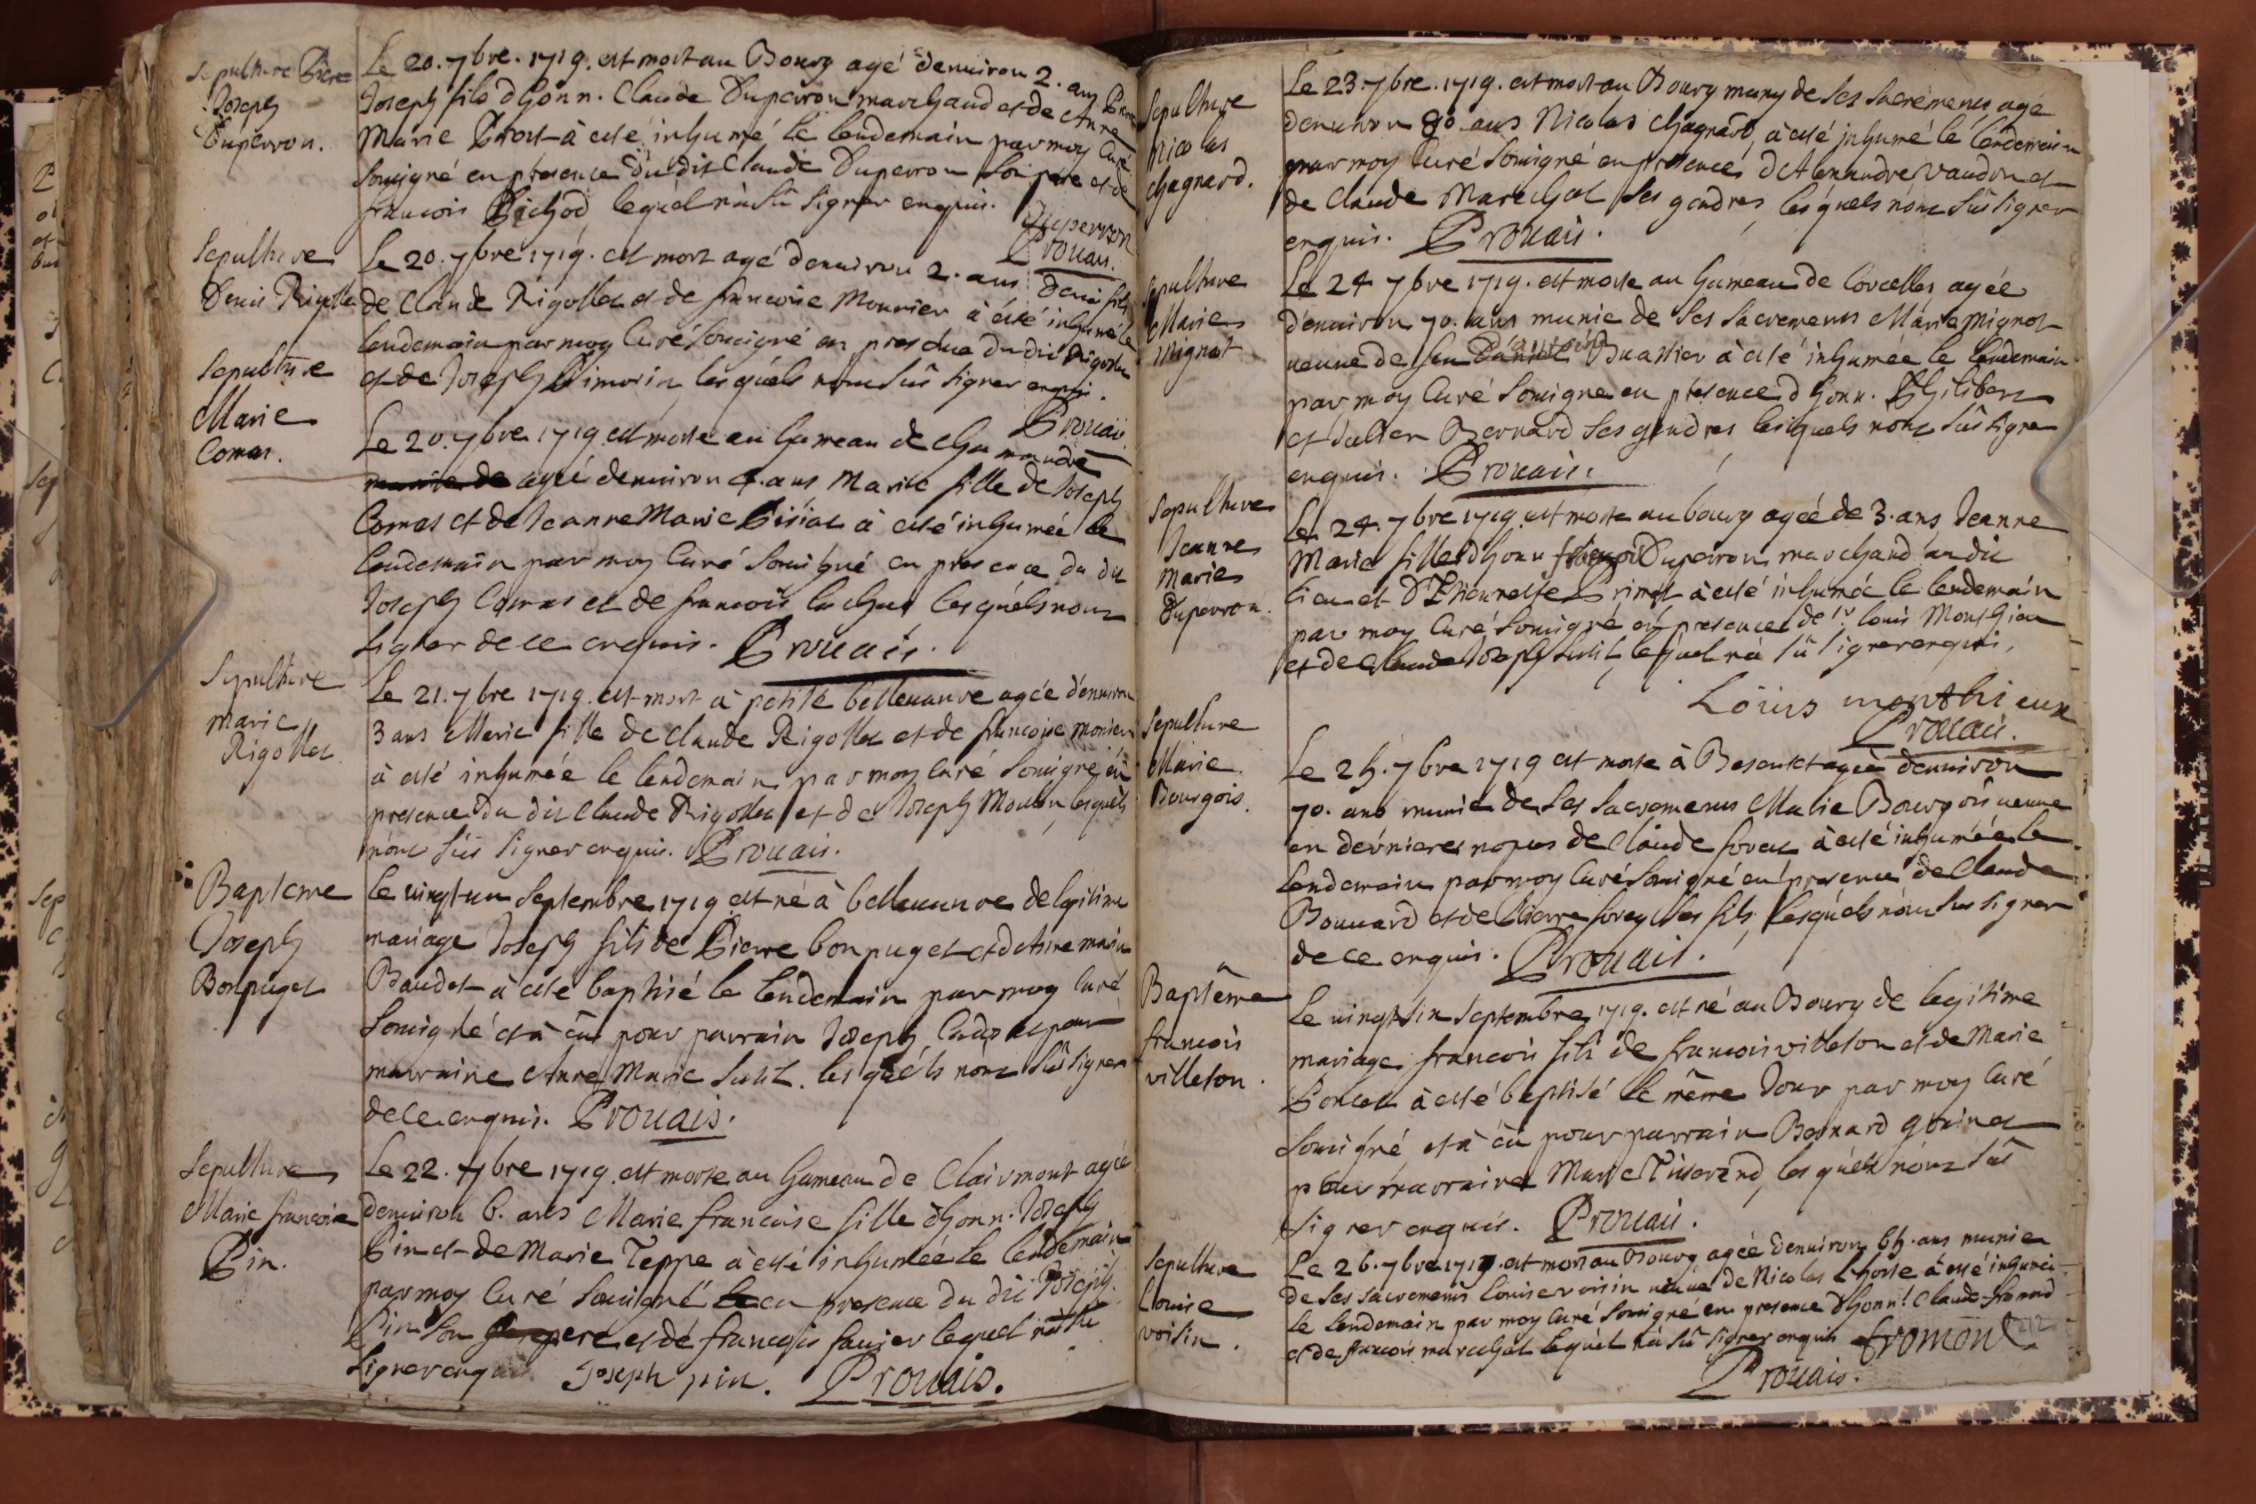 Sepulture Pierre
Joseph
Duperron.
Le 20. 7bre. 1719. est mort au Bourg agé denuiron 2. ans Pierre
Joseph fils d'honn. Claude Duperron marchand et de Anne
Marie Prost à esté inhumé le lendemain par moy Curé
Sousigné en presence du dit Claude Duperron son pere et de
francois Pichod lequel n'a sû signer enquis.
Duperron
Prouais.
Sepulture
Denis Rigollet
Le 20. 7bre 1719. est mort agé denuiron 2. ans Denis fils
de Claude Rigollet et de francoise Monnier à esté inhumé le
lendemain par moy Curé Sousigné en presence du dit Rigollet
et de Joseph Simorin lesquels n'ont sû signer enquis.
Prouais
Sepulture
Marie
Comas.
Le 20. 7bre 1719 est morte au hameau de
agée denuiron 4. ans Marie fille de Joseph
Comas et de Jeanne Marie à esté inhumée le
lendemain par moy Curé Souigné en presence du dit
Joseph Comas et de francois lesquels n'ont
signer de ce enquis. Prouais.
Sepulture
Marie
Rigollet
Le 21. 7bre 1719. est mort à petite belleuaure agée d'enuiron
3 ans Marie fille de Claude Rigollet et de francoise monier
à esté inhumée le lendemain par moy Curé Souigné en
presence du dit Claude Rigollet et de Joseph Moulin, lesquels
n'ont sûs signer enquis. Prouais.
Bapteme
Joseph
Bonpuget
Le uingt un Septembre 1719 est né à belleuaure de legitime
mariage Joseph fils de Pierre bonpuget et de Anne marie
Baudet à esté baptisé le lendemain par moy Curé
Souigné et à êu pour parrain Joseph et pour
marraine Anne Marie lesquels n'ont sûs signer
de ce enquis. Prouais.
Sepulture
Marie francoise
Pin.
Le 22. 7bre 1719. est morte au hameau de Clairmont agée
denuiron 6. ans Marie francoise fille d'honn. Joseph
Pin et de Marie Teppe à esté inhumée le lendemain
par moy Curé Souigné en presence du dit Joseph
Pin son pere et de francois lequel n'a sû
signer enquis Joseph pin. Prouais.
Sepulture
nicolas
chagnard.
Le 23. 7bre. 1719. est mort au Bourg muny de ses sacrements agé
denuiron 80 ans Nicolas chagnard, à esté inhumé le lendemain
par moy Curé Souigné en presence d'Alexandre vaudon et
de Claude Marechal ses gendres lesquels n'ont sûs signer
enquis. Prouais.
Sepulture
Marie
mignot
Le 24 7bre 1719. est morte au hameau de Corcelles agée
d'enuiron 70. ans munie de ses sacrements Marie mignot
ueuue de feu Buattier à esté inhumée le lendemain
par moy Curé Souigné en presence d'honn. Philibert
et Bernard ses gendres lesquels n'ont sûs signer
enquis. Prouais.
Sepulture
Jeanne
Marie
Duperron.
Le 24. 7bre 1719 est morte au bourg agée de 3. ans Jeanne
Marie fille d'honn francois Duperron marchand au dit
lieu et D'Thieunette à esté inhumée le lendemain
par moy Curé Souigné en presence de Sr. louis Monthieu
et de Joseph lequel n'a sû signer enquis,
Loüis monthieux
Prouais.
Sepulture
Marie
Bourgois.
Le 25. 7bre 1719 est morte à agée denuiron
70. ans munie de ses sacrements Marie Bourgois ueuue
en dernieres nopces de Claude à esté inhumée le
lendemain par moy Curé Souigné en presence de Claude
Bouuard et de Pierre ses fils, lesquels n'ont sûs signer
de ce enquis. Prouais.
Baptême
francois
villeton.
Le uingt six Septembre 1719. est né au Bourg de legitime
mariage francois fils de francois villeton et de Marie
Poncet à esté baptisé le même Jour par moy Curé
Souigné et à êu pour parrain Bernard
pour marraine Marie lesquels n'ont sûs
signer enquis. Prouais.
Sepulture
Louise
voisin.
Le 26. 7bre 1719. est mort au Bourg agée denuiron 65. ans munie
de ses sacrements Louise voisin ueuue de Nicolas à esté inhumée
le lendemain par moy Curé Souigné en presence d'honn. Claude
et de francois marechal lequel n'a sû signer enquis fromont
Prouais.